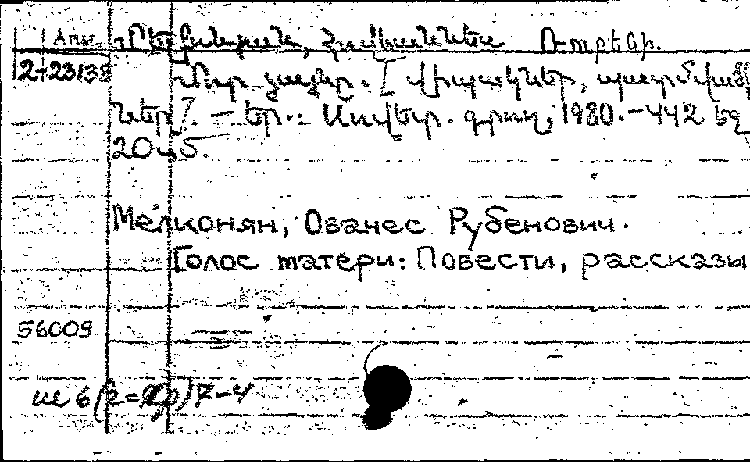 Арм. Մելքոնյան, Հովհաննես Ռուբենի.
2-23138 Մոր ձայնը. [Վիպակներ, պատմվածք
ներ]. – Եր.: Սովետ. գրող, 1980. – 442 էջ
20 սմ.
Мелконян, Ованес Рубенович.
Голос матери: Повести, рассказы
56009